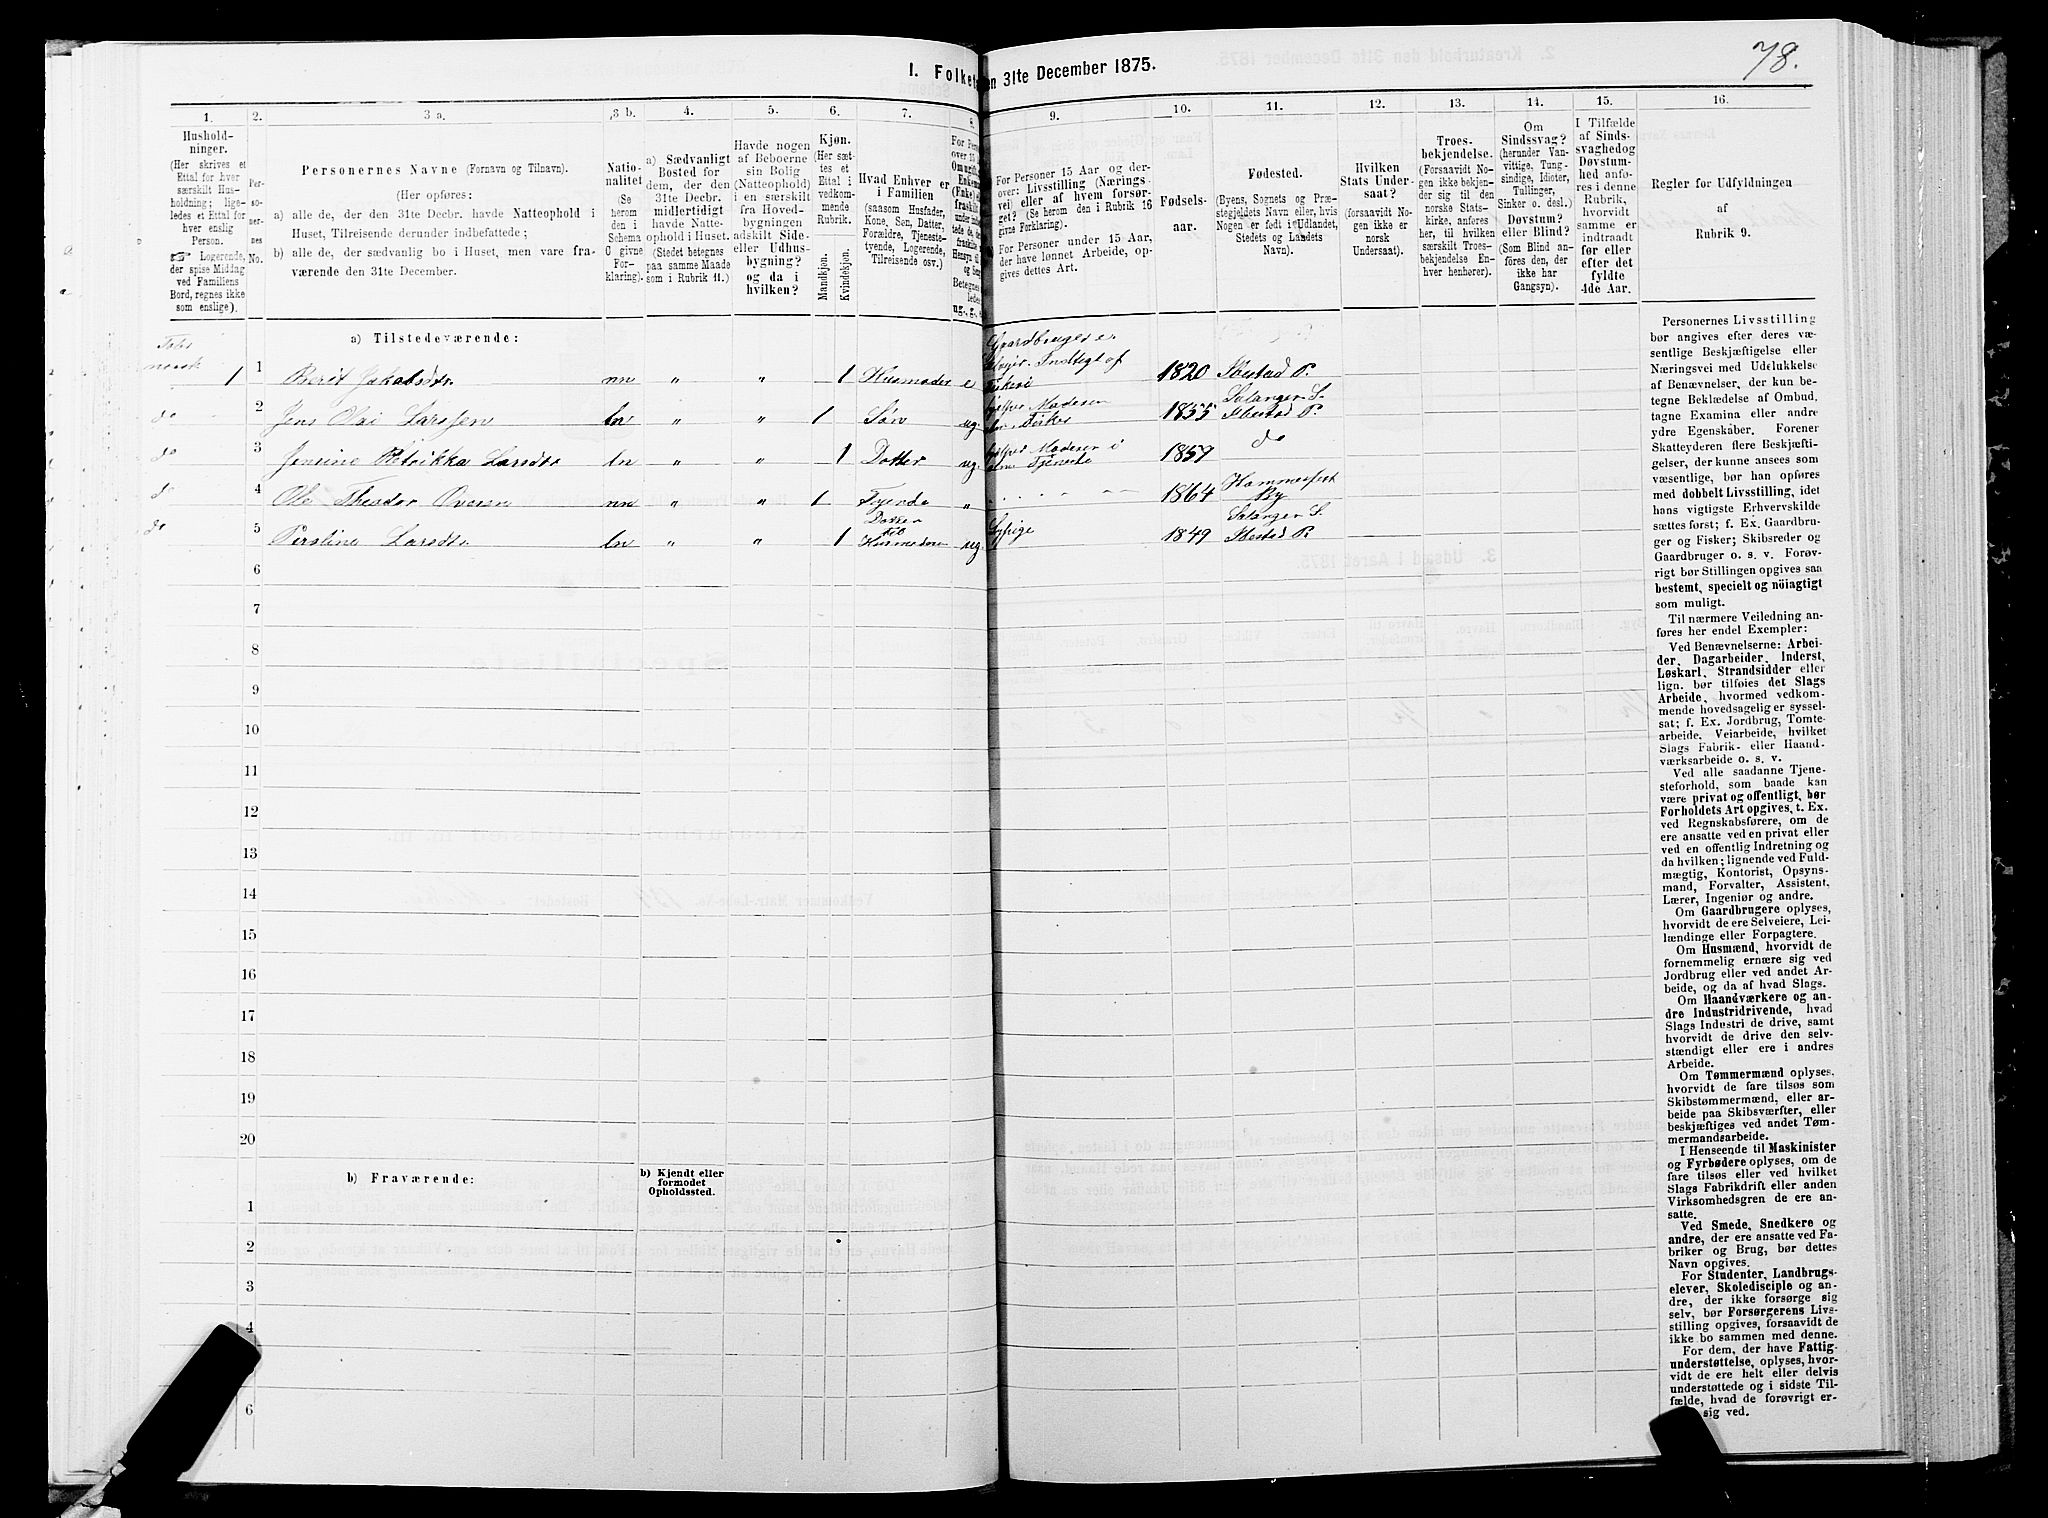 78.
I. Folketæ
en 31te December 1875.
1.
2.
3 a.
3 b.
4.
5.
6.
7.
8.
9.
10.
11.
12.
13.
14.
15.
16.
Hushold-
ninger.
(Her skrives et
Ettal for hver
særskilt Hus-
holdning; lige-
ledes et Ettal for
hver enslig
Person.
☞ Logerende,
der spise Middag
ved Familiens
Bord, regnes ikke
som enslige).
Per-
so-
ner-
nes
No.
Personernes Navne (Fornavn og Tilnavn).
(Her opføres:
a) alle de, der den 31te Decbr. havde Natteophold i
Huset, Tilreisende derunder indbefattede;
b) alle de, der sædvanlig bo i Huset, men vare fra-
værende den 31te December.
Natio-
nalitet
(Se
herom
den i
Schema
O givne
For-
klaring).
a) Sædvanligt
Bosted for
dem, der den
31te Decbr.
midlertidigt
havde Natte-
ophold i Huset.
(Stedet betegnes
paa samme Maade
som i Rubrik 11.)
Havde nogen
af Beboerne
sin Bolig
(Natteophold)
i en særskilt
fra Hoved-
bygningen
adskilt Side-
eller Udhus-
bygning?
og da i
hvilken?
Kjøn.
(Her sæt-
tes et
Ettal i
vedkom-
mende
Rubrik.
Mandkjøn.
Kvindekjøn.
Hvad Enhver er
i Familien
(saasom Husfader,
Kone, Søn, Datter,
Forældre, Tjeneste-
tyende, Logerende,
Tilreisende osv.)
For Personer 15 Aar og der-
over: Livsstilling (Nærings-
vei) eller af hvem forsør-
get? (Se herom den i Rubrik 16
givne Forklaring.)
For Personer under 15 Aar,
der have lønnet Arbeide, op-
gives dettes Art.
Fødsels-
aar.
Fødested.
(Byens, Sognets og Præ-
stegjeldets Navn eller, hvis
Nogen er født i Udlandet,
Stedets og Landets
Navn).
Hvilken
Stats Under-
saat?
(forsaavidt No-
gen ikke er
norsk
Undersaat).
Troes-
bekjendelse.
(Forsaavidt No-
gen ikke bekjen-
der sig til den
norske Stats-
kirke, anføres
her, til hvilken
særskilt Troes-
bekjendelse En-
hver henhører).
Om
Sindssvag?
(herunder Van-
vittige, Tung-
sindige, Idioter,
Tullinger,
Sinker o. desl.)
Døvstum?
eller Blind?
(Som Blind an-
føres den, der
ikke har
Gangsyn).
I Tilfælde
af Sinds-
svaghed og
Døvstum-
hed anfø-
res i denne
Rubrik,
hvorvidt
samme er
indtraadt
før eller
efter det
fyldte
4de Aar.
Regler for Udfyldningen
af
Rubrik 9.
a) Tilstedeværende:
norsk
1
1 Berit Jakobsdtr nn „ „ 1 Husmoder e Gaardbruger
Indtægt af
Fiskeri 1820 Ibestad P.
do 2 Jens Olai Larssen bn „ „ 1 Søn ug. 1855 Salangen S.
Ibestad P.
do 3 Jensine Petrikka Larsdtr bn „ „ 1 Datter ug. 1857 do
do 4 Ole Theodor Ovesen nn „ „ 1 Tyende „ 1864 Hammerfest
By
do 5 Peroline Larsdtr bn „ „ 1 Datter
til
Husmoderen ug. Sypige 1849 Salangen S.
Ibestad P.
6
7
8
9
10
11
12
13
14
15
16
17
18
19
20
b) Fraværende:
b) Kjendt eller
formodet
Opholdssted.
1
2
3
4
6
Personernes Livsstilling
bør angives efter deres væ-
sentlige Beskjæftigelse eller
Næringsvei med Udelukkelse
af Benævnelser, der kun be-
tegne Beklædelse af Ombud,
tagne Examina eller andre
ydre Egenskaber. Forener
Skatteyderen flere Beskjæfti-
gelser, der kunne ansees som
væsentlige, bør han opføres
med dobbelt Livsstilling, idet
hans vigtigste Erhvervskilde
sættes først; f. Ex. Gaardbru-
ger og Fisker; Skibsreder og
Gaardbruger o. s. v. Forøv-
rigt bør Stillingen opgives saa
bestemt, specielt og nöiagtigt
som muligt.
Til nærmere Veiledning an-
føres her endel Exempler:
Ved Benævnelserne: Arbei-
der, Dagarbeider, Inderst,
Løskarl, Strandsidder eller
lign. bør tilføies det Slags
Arbeide, hvormed vedkom-
mende hovedsagelig er syssel-
sat; f. Ex. Jordbrug, Tomte-
arbeide, Veiarbeide, hvilket
Slags Fabrik- eller Haand-
værksarbeide o. s. v.
Ved alle saadanne Tjene-
steforhold, som baade kan
være privat og offentligt, bør
Forholdets Art opgives, t. Ex.
ved Regnskabsførere, om de
ere ansatte ved en privat eller
ved en offentlig Indretning og
da hvilken; lignende ved Fuld-
mægtig, Kontorist, Opsyns-
mand, Forvalter, Assistent,
Lærer, Ingeniør og andre.
Om Gaardbrugere oplyses,
hvorvidt de ere Selveiere, Lei-
lændinge eller Forpagtere.
Om Husmænd, hvorvidt de
fornemmelig ernære sig ved
Jordbrug eller ved andet Ar-
beide, og da af hvad Slags.
Om Haandværkere og an-
dre Industridrivende, hvad
Slags Industri de drive, samt
hvorvidt de drive den selv-
stændigt eller ere i andres
Arbeide.
Om Tømmermænd oplyses,
hvorvidt de fare tilsøs som
Skibstømmermænd, eller ar-
beide paa Skibsværfter, eller
beskjæftiges ved andet Tøm-
mermandsarbeide.
I Henseende til Maskinister
og Fyrbødere oplyses, om de
fare tilsøs eller ved hvilket
Slags Fabrikdrift eller anden
Virksomhedsgren de ere an-
satte.
Ved Smede, Snedkere og
andre, der ere ansatte ved Fa-
briker og Brug, bør dettes
Navn opgives.
For Studenter, Landbrugs-
elever, Skoledisciple og an-
dre, der ikke forsørge sig
selv, bør Forsørgerens Livs-
stilling opgives, forsaavidt de
ikke bo sammen med denne.
For dem, der have Fattig-
understøttelse, oplyses, hvor-
vidt de ere helt eller delvis
understøttede og i sidste Til-
fælde, hvad de forøvrigt er-
sig ved.